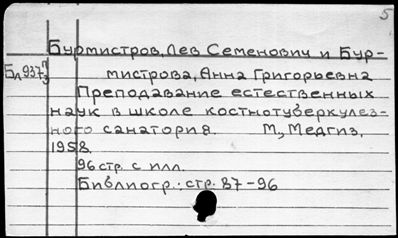 5
Бурмистров, Лев Семенович и Бур-
Бл937 п/3 мистрова, Анна Григорьевна
Преподавание естественных
наук в школе костнотуберкулез-
ного санатория. М., Медгиз,
1958
96 стр. с илл.
Библиогр.: стр. 87-96